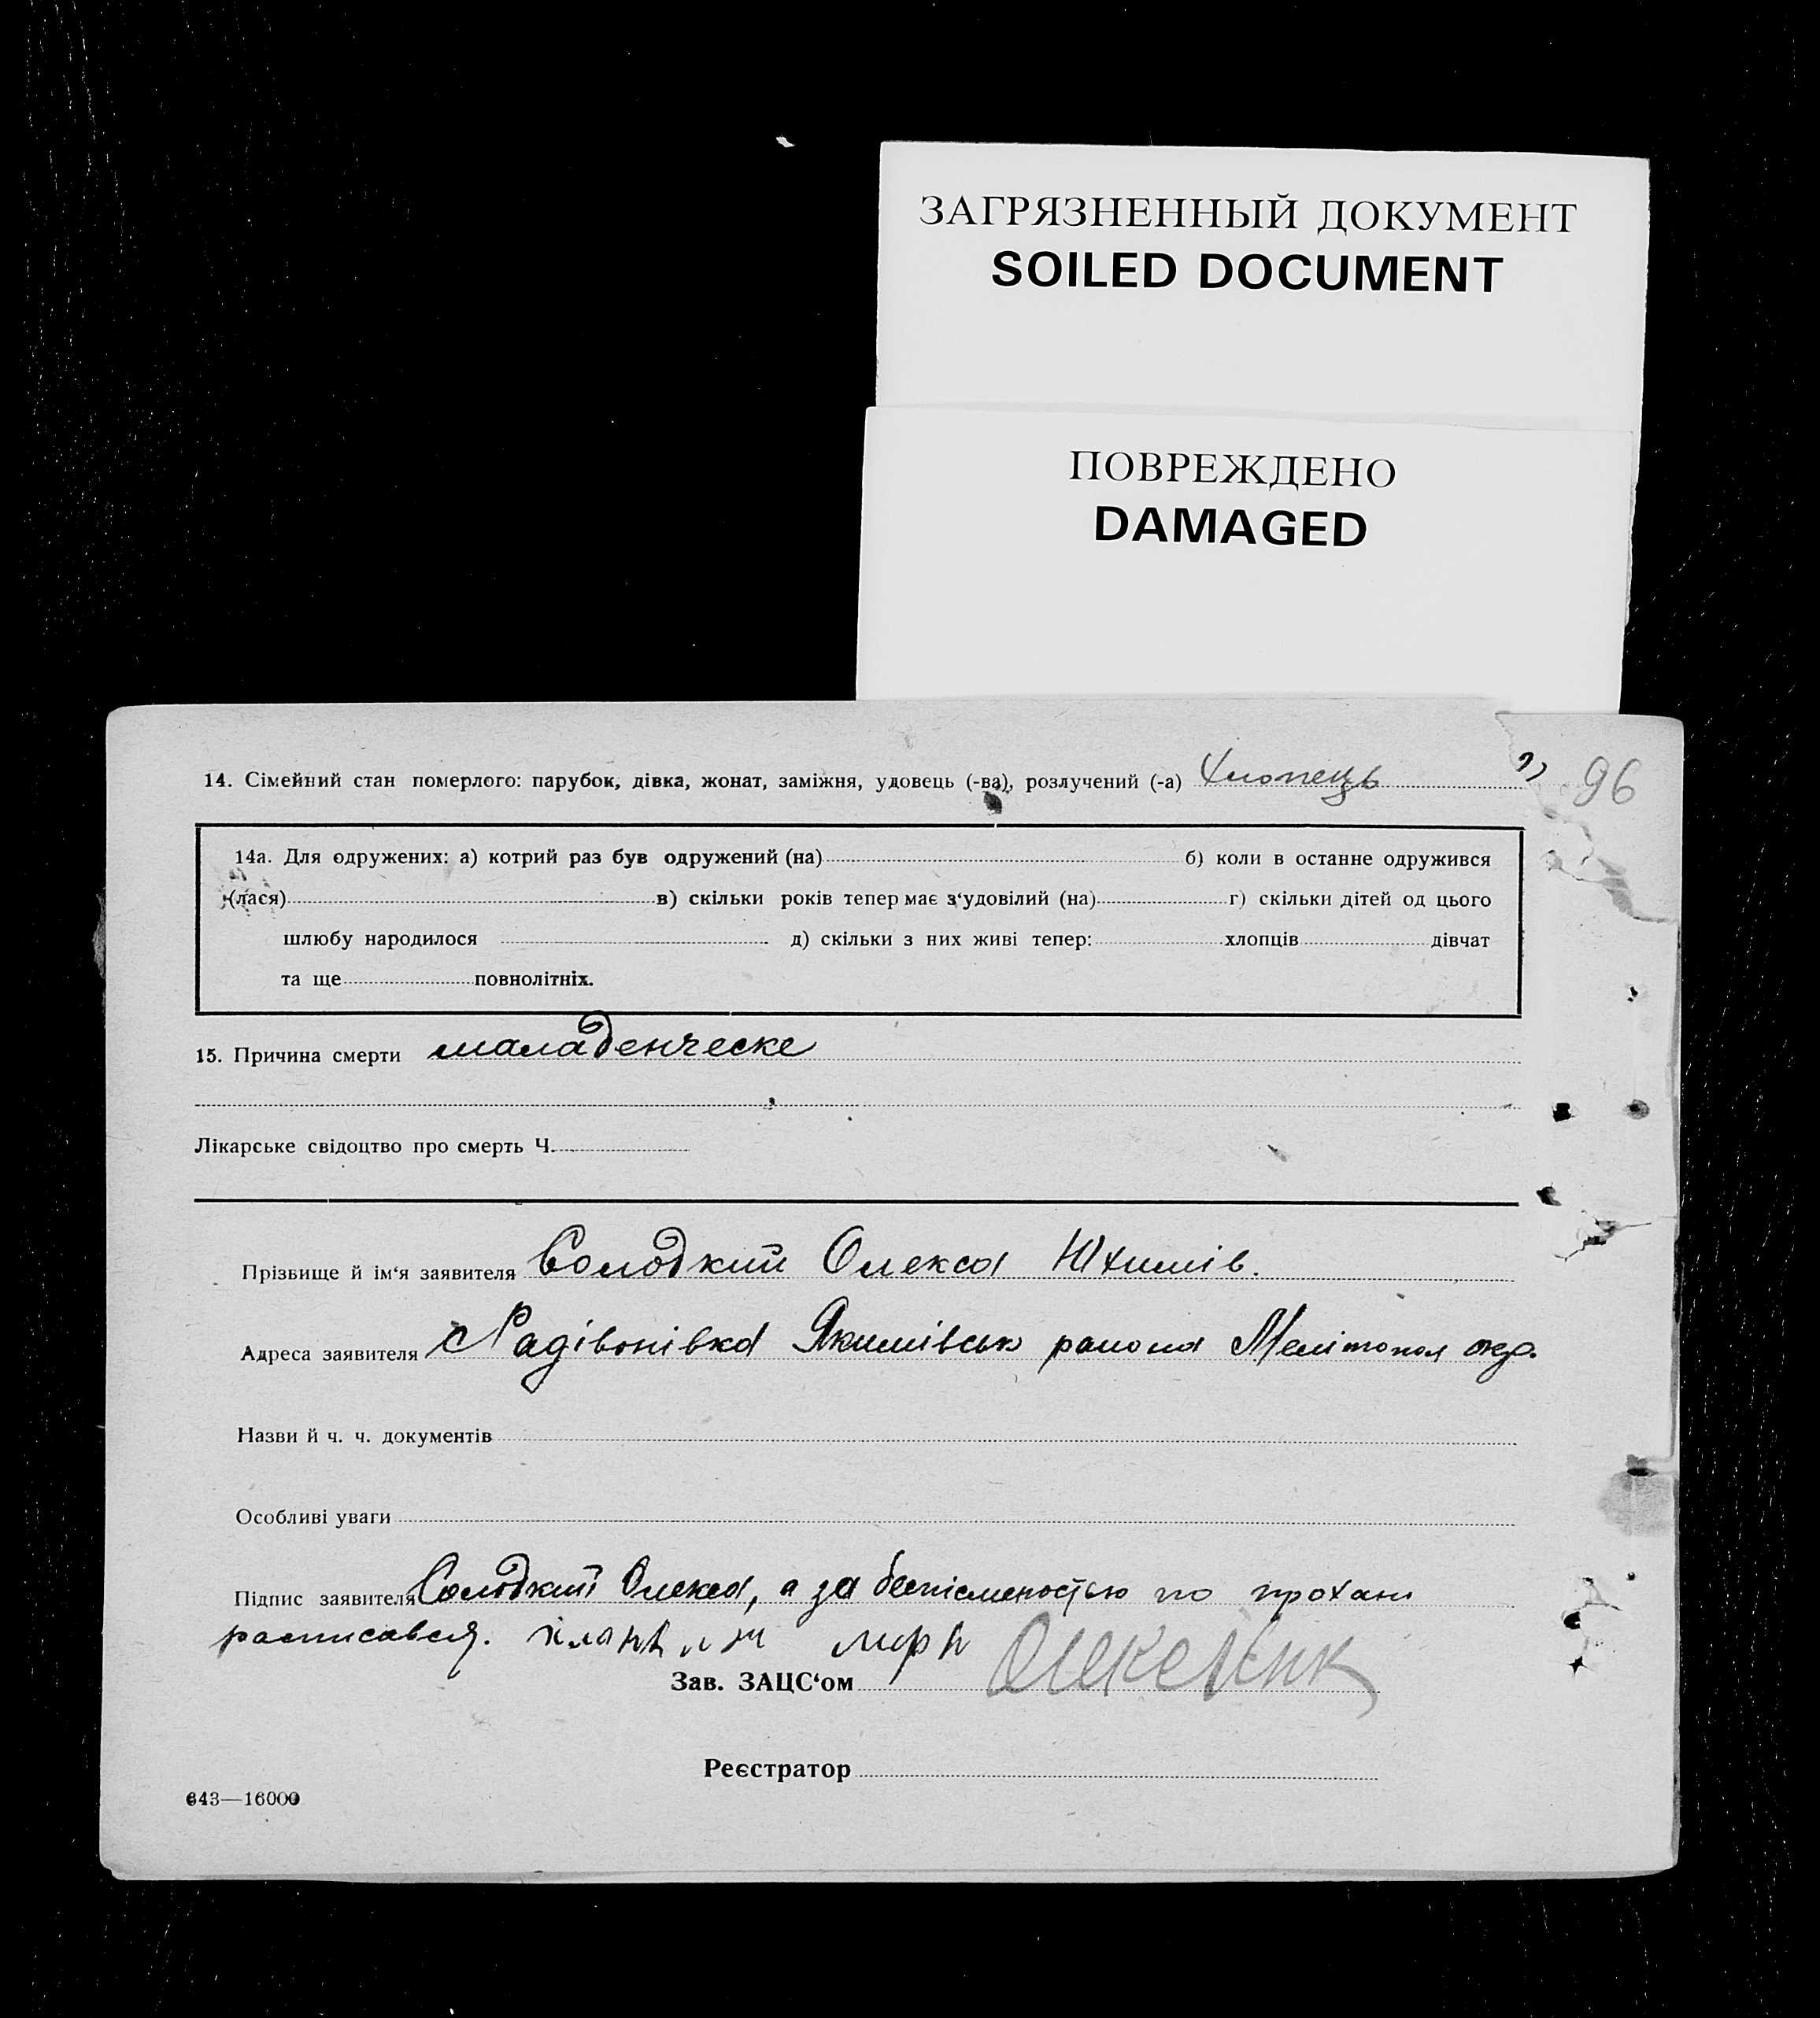 ЗАГРЯЗНЕННЫЙ ДОКУМЕНТ
SOILED DOCUMENT
ПОВРЕЖДЕНО
DAMAGED
96
14. Сімейний стан померлого: парубок, дівка, жонат, заміжня, удовець (-ва), розлучений (-а) Хлопець
14а. Для одружених: а) котрий раз був одружений (на) б) коли в останне одружився
(лася) в) скільки років тепер має з‘удовілий (на) г) скільки дітей од цього
шлюбу народилося д) скільки з них живі тепер: хлопців дівчат
та ще повнолітніх.
15. Причина смерти маладенческе
Лікарське свідоцтво про смерть Ч.
Прізвище й ім‘я заявителя Солодкий Олекса Юхимів.
Адреса заявителя с Радівонівка Якимівськ района Мелітопол окр.
Назви й ч. ч. документів
Особливі уваги
Підпис заявителя Солодкий Олекса, а за беспісменостью по прохан
расписався.
Зав. ЗАЦС‘ом
Реєстратор
643—16000